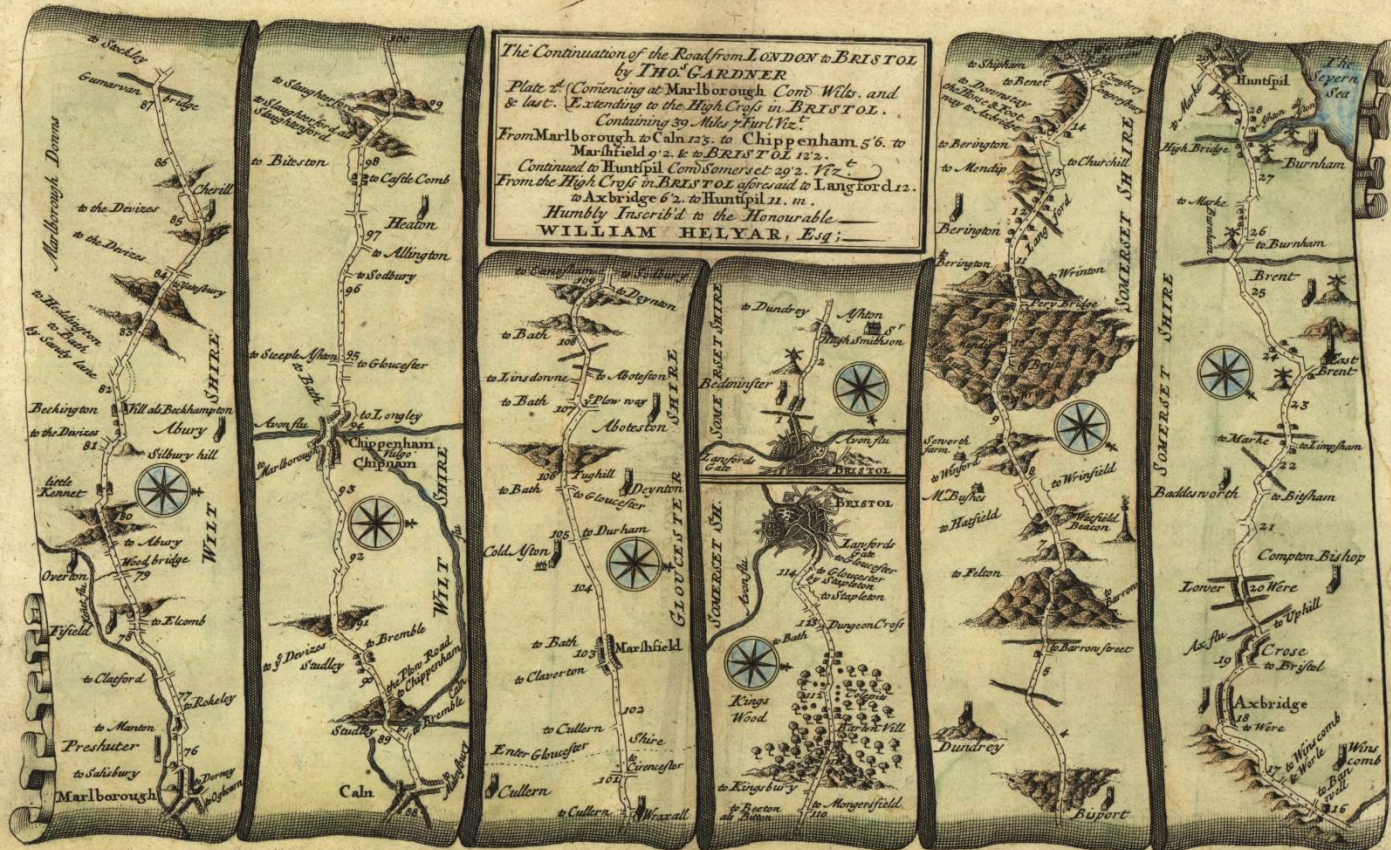 The Continuation of the Road from LONDON to BRISTOL
by THO.s GARDNER
Plate 2.d (Comencing at Marlborough Com Wilts. and
& last. Extending to the High Cross in BRISTOL.
Containing 39 Miles 7 Furl. Viz.t
From Marlborough to Caln 12'3. to Chippenham 5'6. to
Marshfield 9'2. & to BRISTOL 12'2.
Continued to Huntspil Com Somerset 29'2. Viz.t
From the High Cross in BRISTOL aforesaid to Langford 12.
to Axbridge 6'2. to Huntspil 11. m.
Humbly Inscrib'd to the Honourable
WILLIAM HELYAR, Esq;
to Stockley
Gumarvan Bridge
87
Marlborough Downs
86
Cherill
to the Devizes
85
to the Devizes
84
to Yatesbury
to Heddington
83
to Bath
by Sandy lane
82
WILT SHIRE
Beckington
Vill als Beckhampton
to the Devizes
Abury
81
Silbury hill
little Kennet
80
to Abury
Wood bridge
79
Overton
Fyfield
78
to Elcomb
to Clatford
77
to Rokeley
to Manton
Preshuter
76
to Salisbury
to Dorney
Marlborough
to Ogbourn
100
to Slaughterford
99
to Slaughterford als
Slaughtenford
to Biteston
98
to Castle Comb
Heaton
97
to Allington
to Sodbury
96
to Steeple Ashton
95
to Gloucester
to Bath
to Longley
94
Avon flu
Chippenham
Vulgo
Chipnam
to Marlborough
93
92
WILT SHIRE
91
to Bremble
to ye Devizes
Studley
90
the Plow Road
to Chippenham
Caln
Studley
89
to Bremble
Caln
88
to Malmsbury
to Sodbury
109
to Deynton
to Bath
108
to Linsdowne
to Aboteston
to Bath
107
ye Plow way
Aboteston
GLOUCESTER SHIRE
106
Tughill
to Bath
to Gloucester
Deynton
105
to Durham
Cold Aston
104
to Bath
103
Marshfield
to Claverton
102
to Cullern
Shire
Enter Gloucester
to Cirencester
101
Cullern
to Cullern
Wraxall
SOMERSET SHIRE
to Dundrey
Ashton
Sr
Hugh Smithson
2
Bedminster
1
Avon flu
Lanfords
Gate
BRISTOL
SOMERSET SH.
BRISTOL
Lanfords
Gate
to Gloucester
Avon flu
114
to Gloucester
by Stapleton
to Stapleton
113
Dungeon Cross
to Bath
Kings
Wood
112
Colepits
Barton Vill
to Kingsbury
to Beeton
als Bitton
to Mongersfield
110
to Shipham
to Benet
Congersbury
to Downsday
the Horse & Foot
way to Axbridge
14
to Berington
to Churchill
to Mendip
13
12
Langford
Berington
SOMERSET SHIRE
Berington
11
to Wrinton
Pery Bridge
9
Seworth
farm
to Winford
8
to Wrinfield
Mr. Bushes
to Hatfield
Hatfield
Beacon
7
to Felton
to Barrow
to Barrow street
5
Dundrey
4
Bisport
29
Huntspil
The
Severn
Sea
to Marke
28
High Bridge
Burnham
27
to Marke
Burnham
26
to Burnham
Brent
25
SOMERSET SHIRE
24
East
Brent
23
to Marke
to Limpsham
22
Baddesworth
to Bitsham
21
Compton Bishop
Lower
20
Were
to Uphill
Ax flu
Crose
19
to Bristol
Axbridge
18
to Were
17
to Winscomb
& Worle
Wins
comb
to Ban
well
16